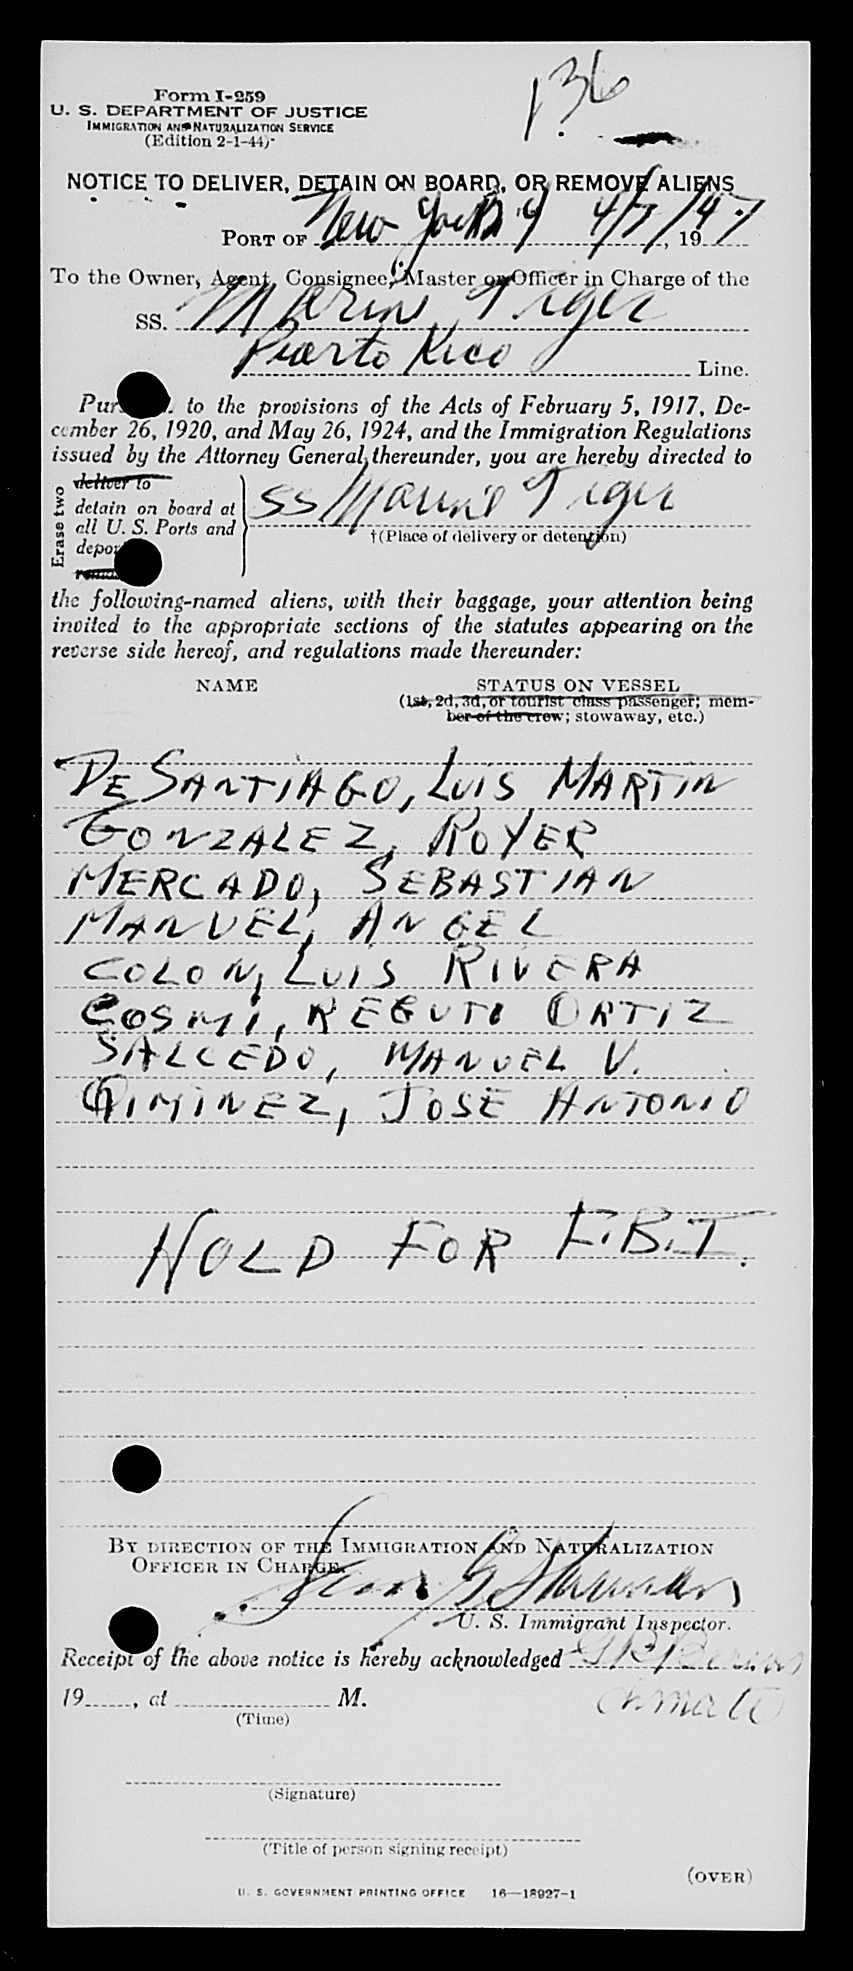 136
Form I-259
U. S. DEPARTMENT OF JUSTICE
IMMIGRATION AND NATURALIZATION SERVICE
(Edition 2-1-44)
NOTICE TO DELIVER, DETAIN ON BOARD, OR REMOVE ALIENS
PORT OF New York 4/7, 1947
To the Owner, Agent, Consignee, Master or Officer in Charge of the
SS. Marine Tiger
Puerto Rico Line.
to the provisions of the Acts of February 5, 1917, De-
cember 26, 1920, and May 26, 1924, and the Immigration Regulations
issued by the Attorney General thereunder, you are hereby directed to
Erase two
deliver to
detain on board at
all U. S. Ports and
SS Marine Tiger
†(Place of delivery or detention)
the following-named aliens, with their baggage, your attention being
invited to the appropriate sections of the statutes appearing on the
reverse side hereof, and regulations made thereunder:
NAME STATUS ON VESSEL
(1st, 2d, 3d, or tourist class passenger; mem-
ber of the crew; stowaway, etc.)
DE SANTIAGO, LUIS MARTIN
GONZALEZ, ROYER
MERCADO, SEBASTIAN
MANUEL, ANGEL
COLON, LUIS RIVERA
COSMI, REGUTO ORTIZ
SALCEDO, MANUEL V.
GIMINEZ, JOSE ANTONIO
HOLD FOR F.B.I.
BY DIRECTION OF THE IMMIGRATION AND NATURALIZATION
OFFICER IN CHARGE.
U. S. Immigrant Inspector.
Receipt of the above notice is hereby acknowledged
19, at M.
(Time)
(Signature)
(Title of person signing receipt)
(OVER)
U. S. GOVERNMENT PRINTING OFFICE 16—18927-1